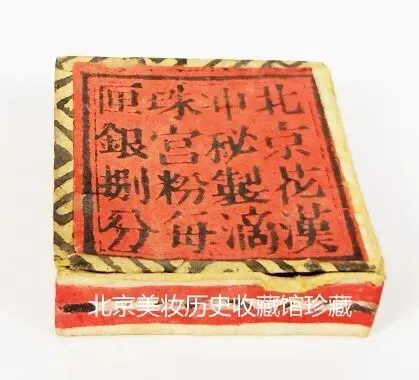 北京花漢
冲秘製滴
珠宮粉每
匣銀捌分
北京美妆历史收藏馆珍藏